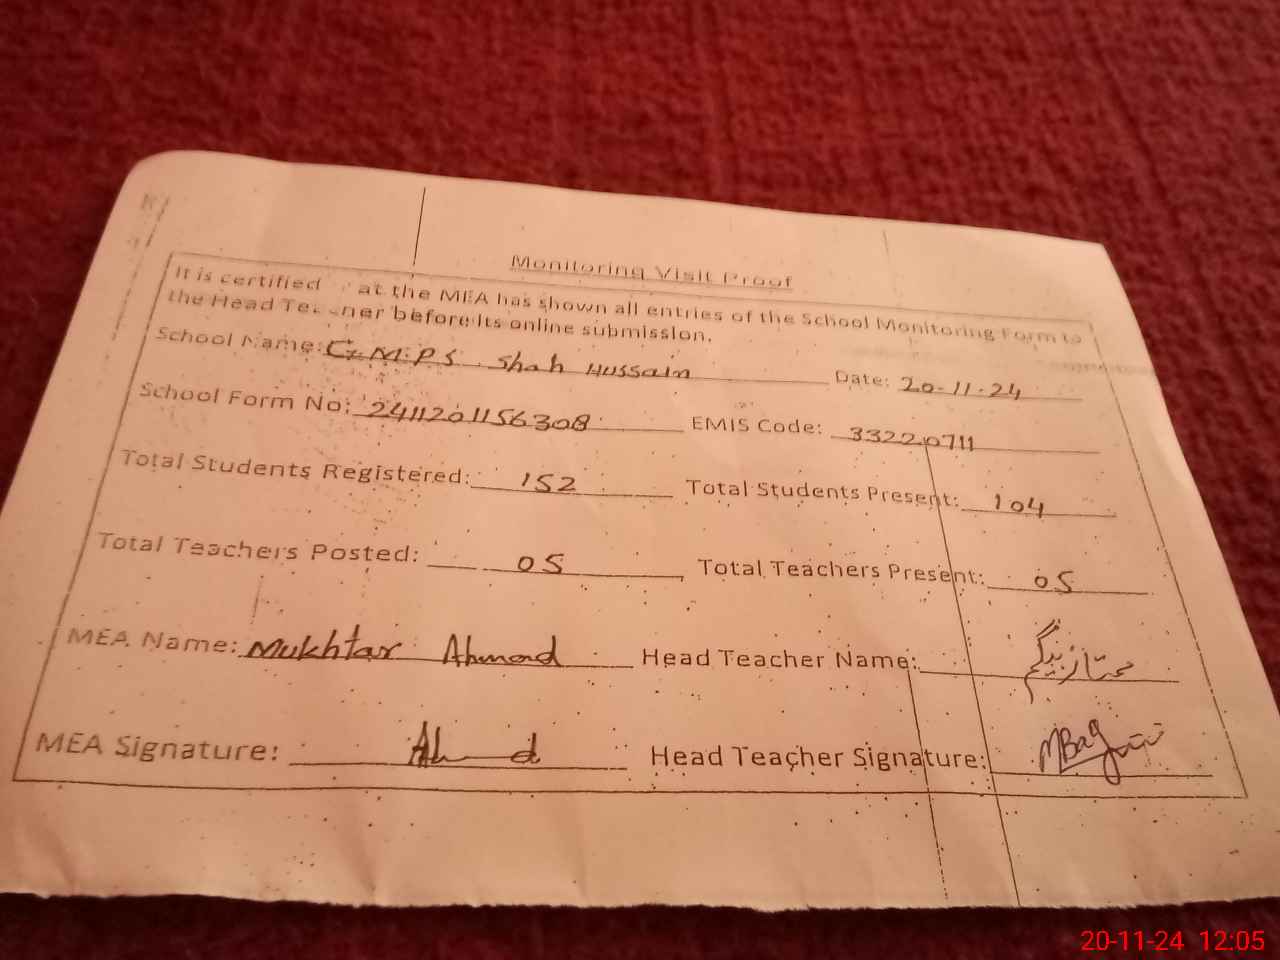 Monitoring Visit Proof
It is certified at the MEA has shown all entries of the School Monitoring Form to
the Head Teacher before its online submission.
School Name: G.M.P.S Shah Hussain Date: 20-11-24
School Form No: 2411201156308 EMIS Code: 33220711
Total Students Registered: 152 Total Students Present: 104
Total Teachers Posted: 05 Total Teachers Present: 05
MEA Name: Mukhtar Ahmad Head Teacher Name: ممتاز بیگم
MEA Signature: Ahmad Head Teacher Signature:
20-11-24 12:05